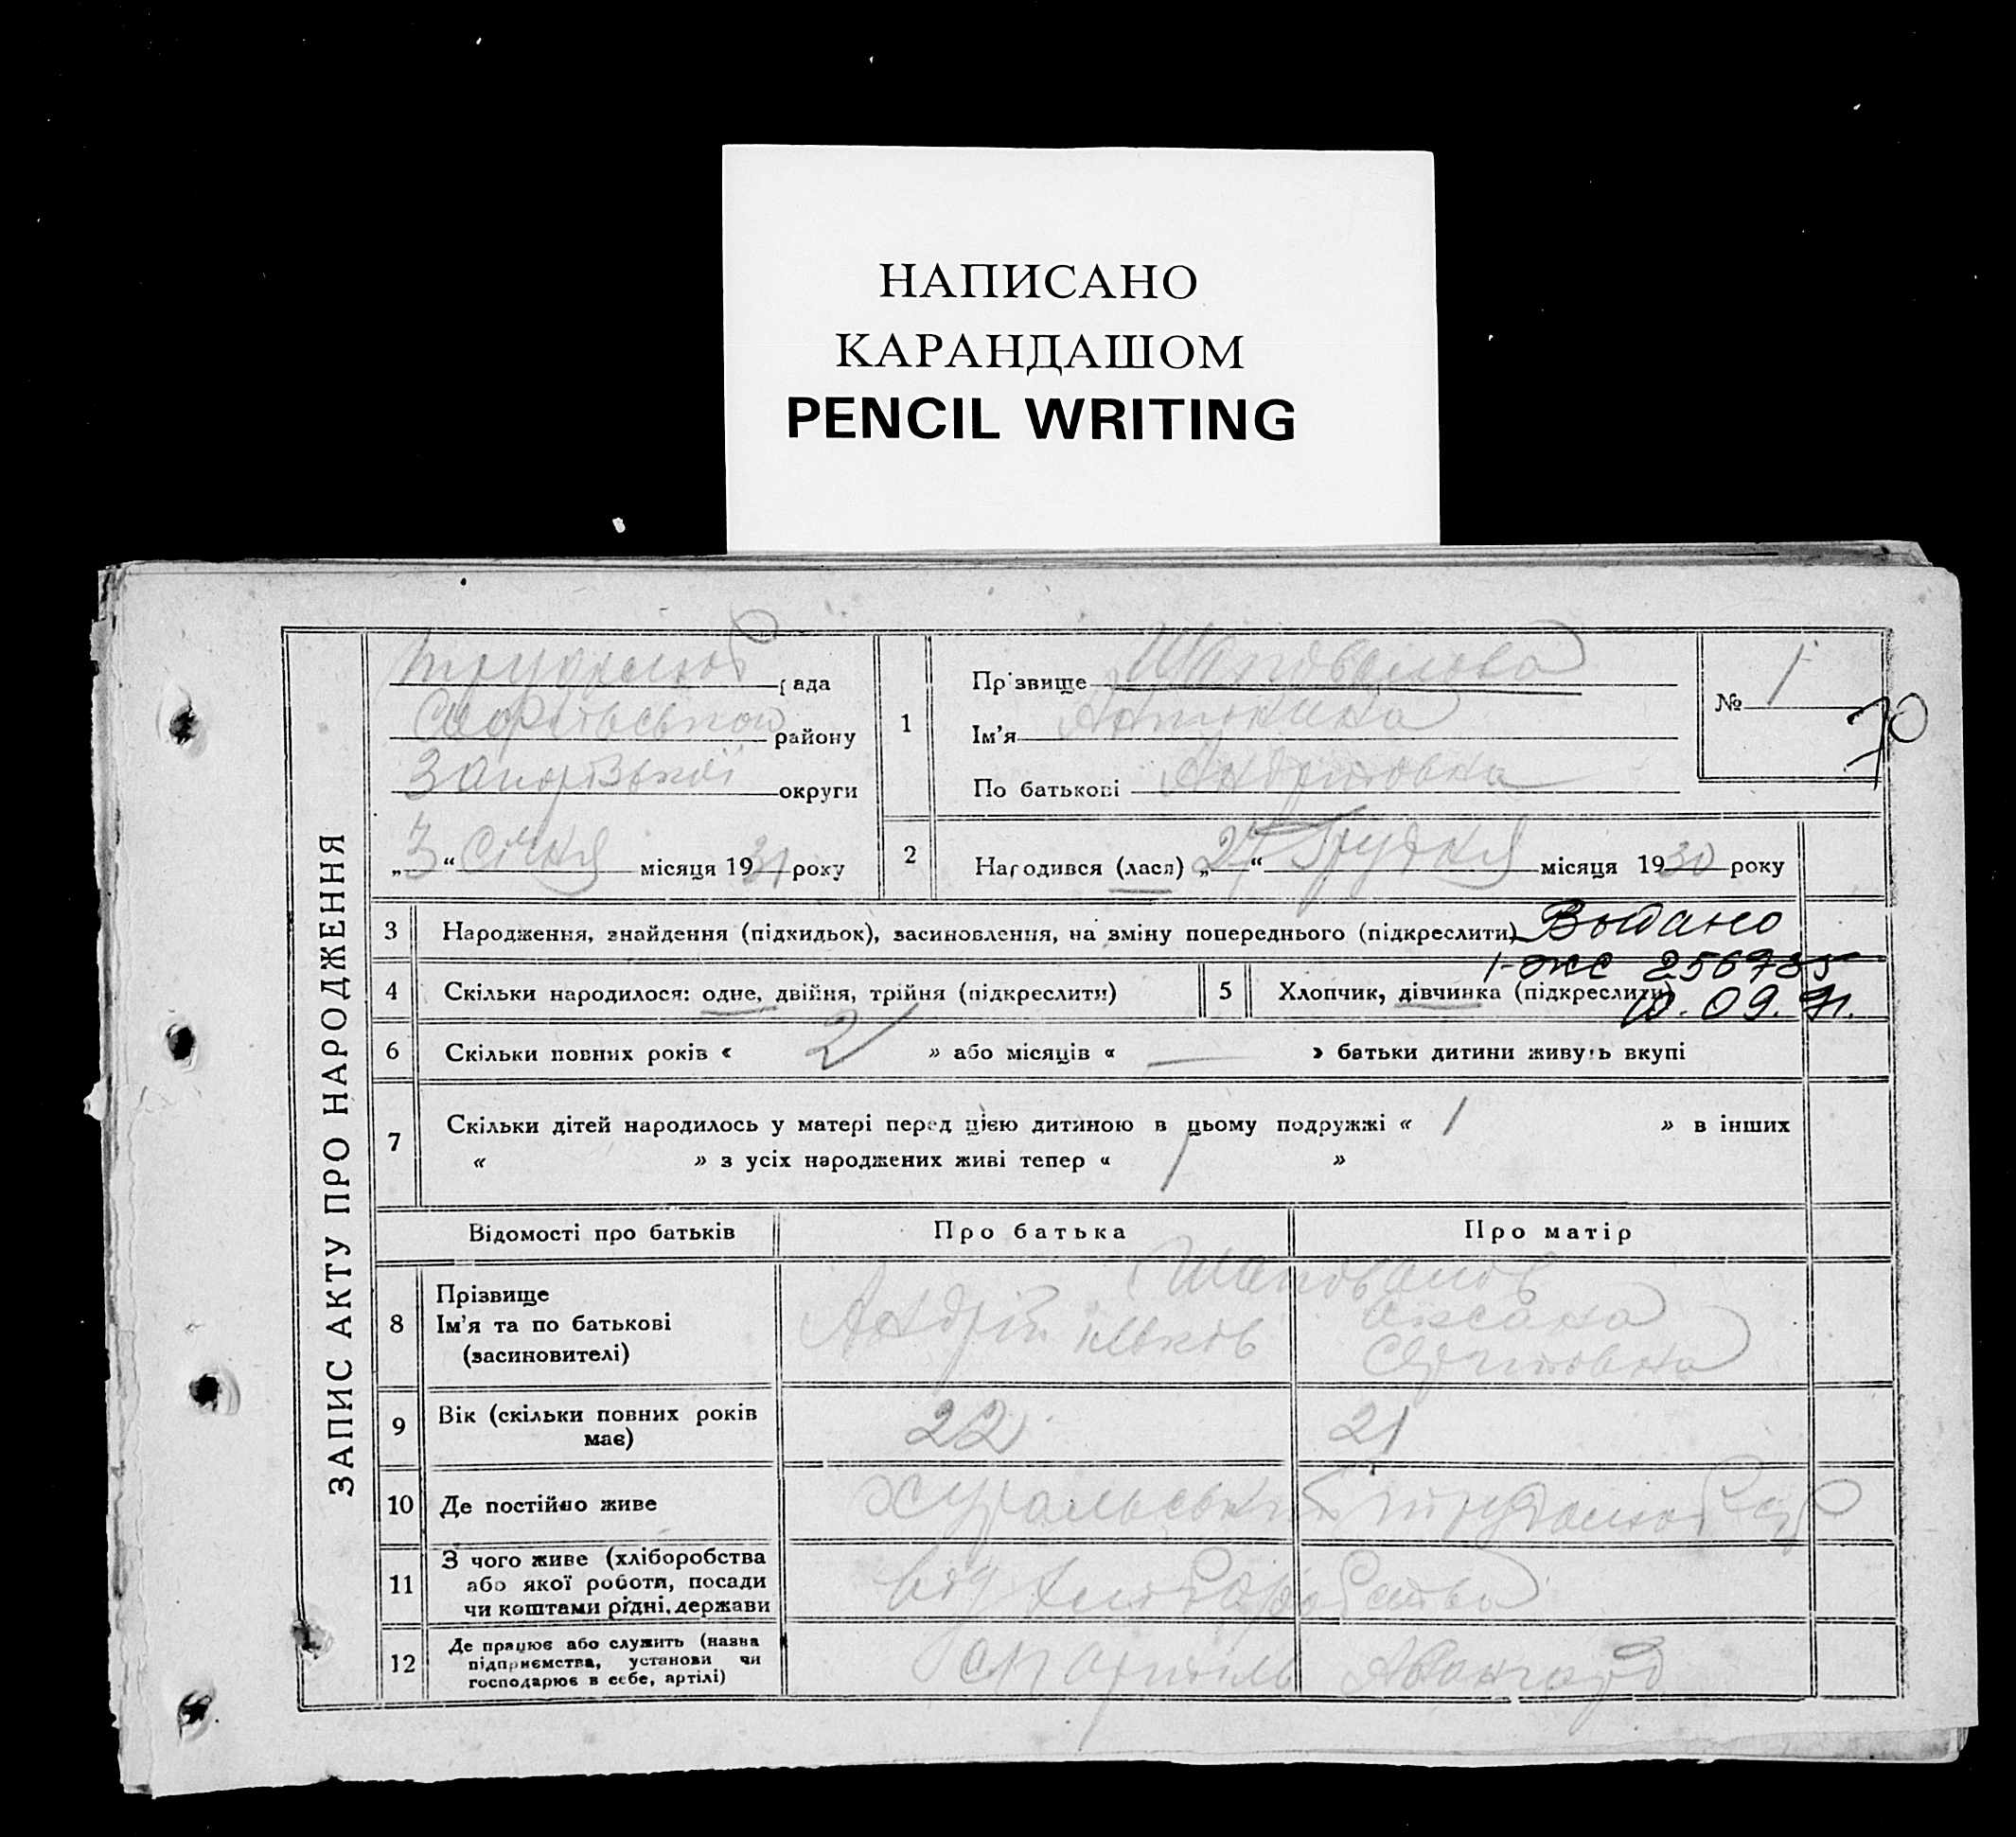 НАПИСАНО
КАРАНДАШОМ
PENCIL WRITING
ЗАПИС АКТУ ПРО НАРОДЖЕННЯ
рада
району
округи
„3“ Січня місяця 1931 року
1
Прізвище Шаповалова
Ім'я Антоніна
По батькові Андріівна
№ 1
70
2
Народився (лася) „27“ Грудня місяця 1930 року
3 Народження, знайдення (підкидьок), засиновлення, на зміну попереднього (підкреслити)
Выдано
I-ЖС 256785
10.09.91.
4 Скільки народилося: одне, двійня, трійня (підкреслити)
5 Хлопчик, дівчинка (підкреслити)
6 Скільки повних років « 2 » або місяців « — » батьки дитини живуть вкупі
7 Скільки дітей народилось у матері перед цією дитиною в цьому подружжі « 1 » в інших
« » з усіх народжених живі тепер « 1 »
Відомості про батьків Про батька Про матір
8 Прізвище
Ім'я та по батькові
(засиновителі)
Шаповалов
Андрій
Оксана
9 Вік (скільки повних років
має)
22 21
10 Де постійно живе
11 З чого живе (хліборобства
або якої роботи, посади
чи коштами рідні, держави
від хліборобства
12 Де працює або служить (назва
підприємства, установи чи
господарює в себе, артілі)
Авангард